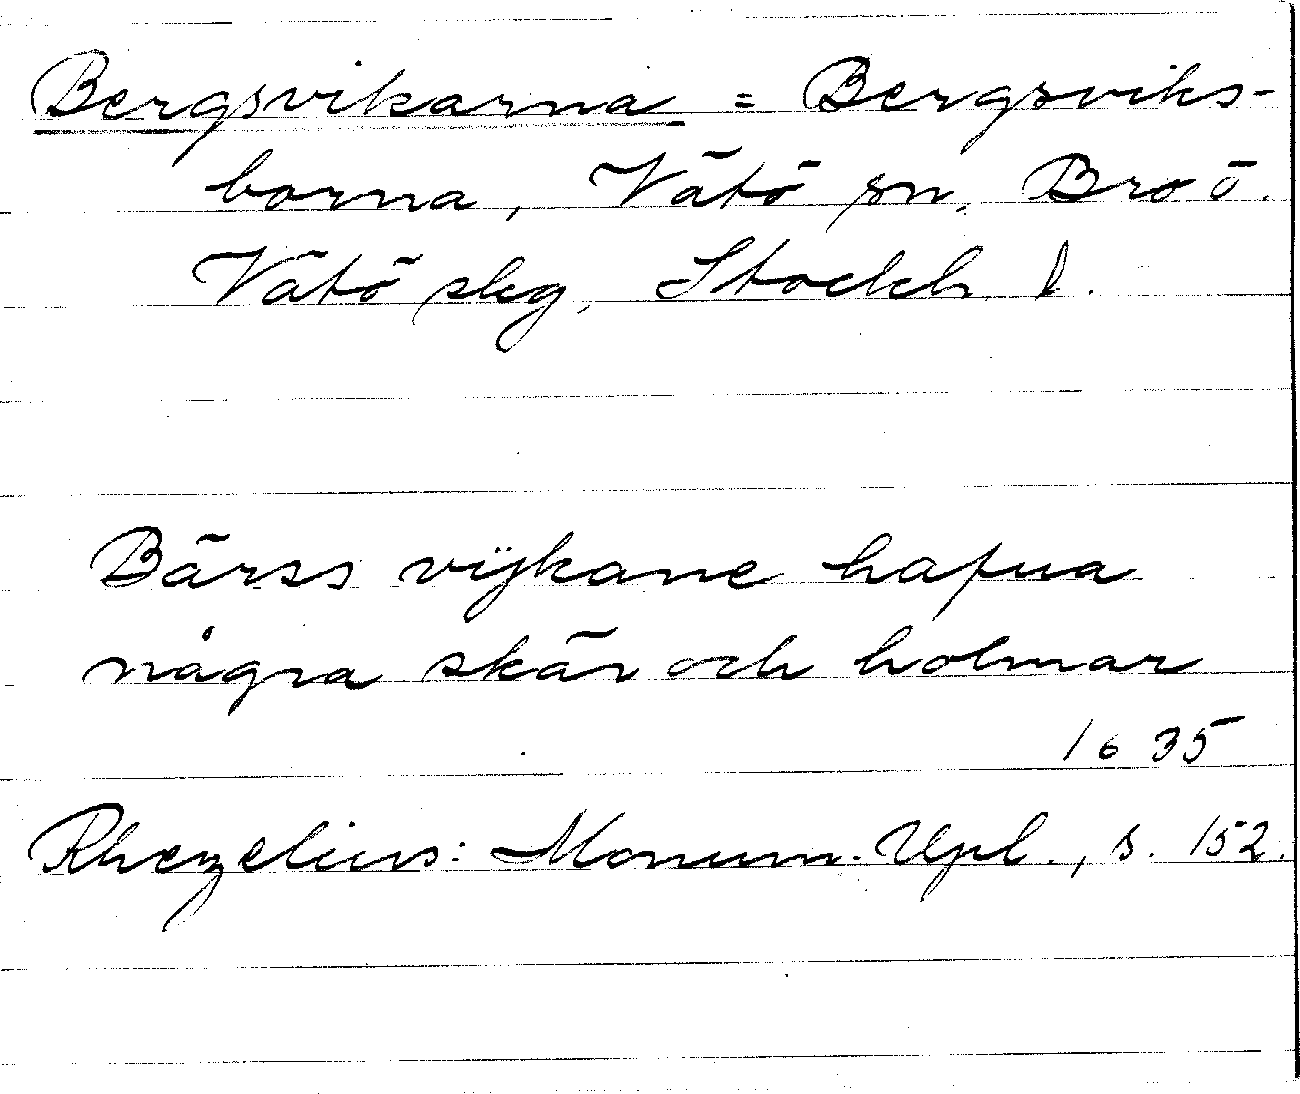 Bergsvikarna = Bergsviks-
borna, Vätö sn, Bro o.
Vätö skg, Stockh. l.
Bärss vijkane hafua
några skär och holmar
1635
Rhezelius: Monum. Upl., s. 152.